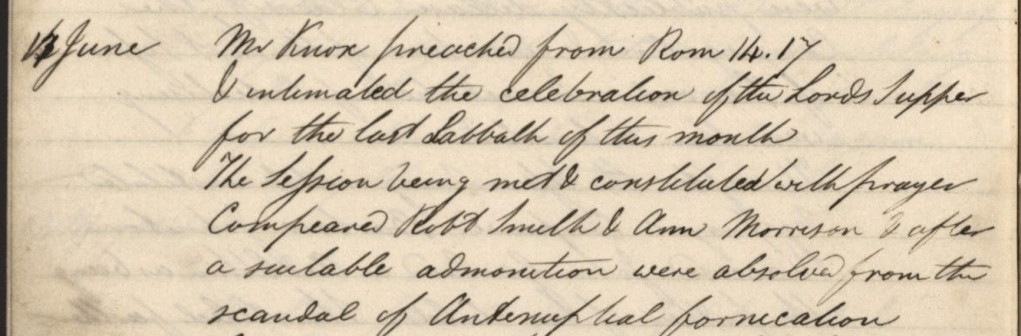 June Mr Knox preached from Rom 14.17
& intimated the celebration of the Lords Supper
for the last Sabbath of this month
The Session being met & constituted with prayer
Compeared Robt Smith & Ann Morrison & after
a suitable admonition were absolved from the
scandal of Antenuptial fornication